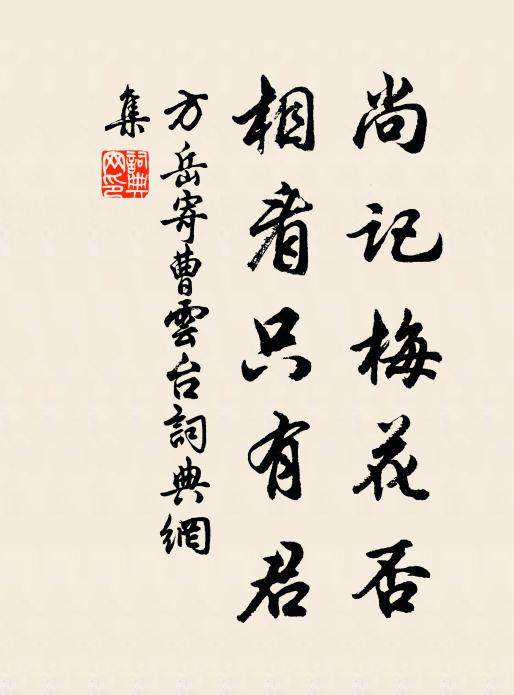 尚记梅花否
相看只有君
方岳寄曹雲台詞典網
集
詞典网印